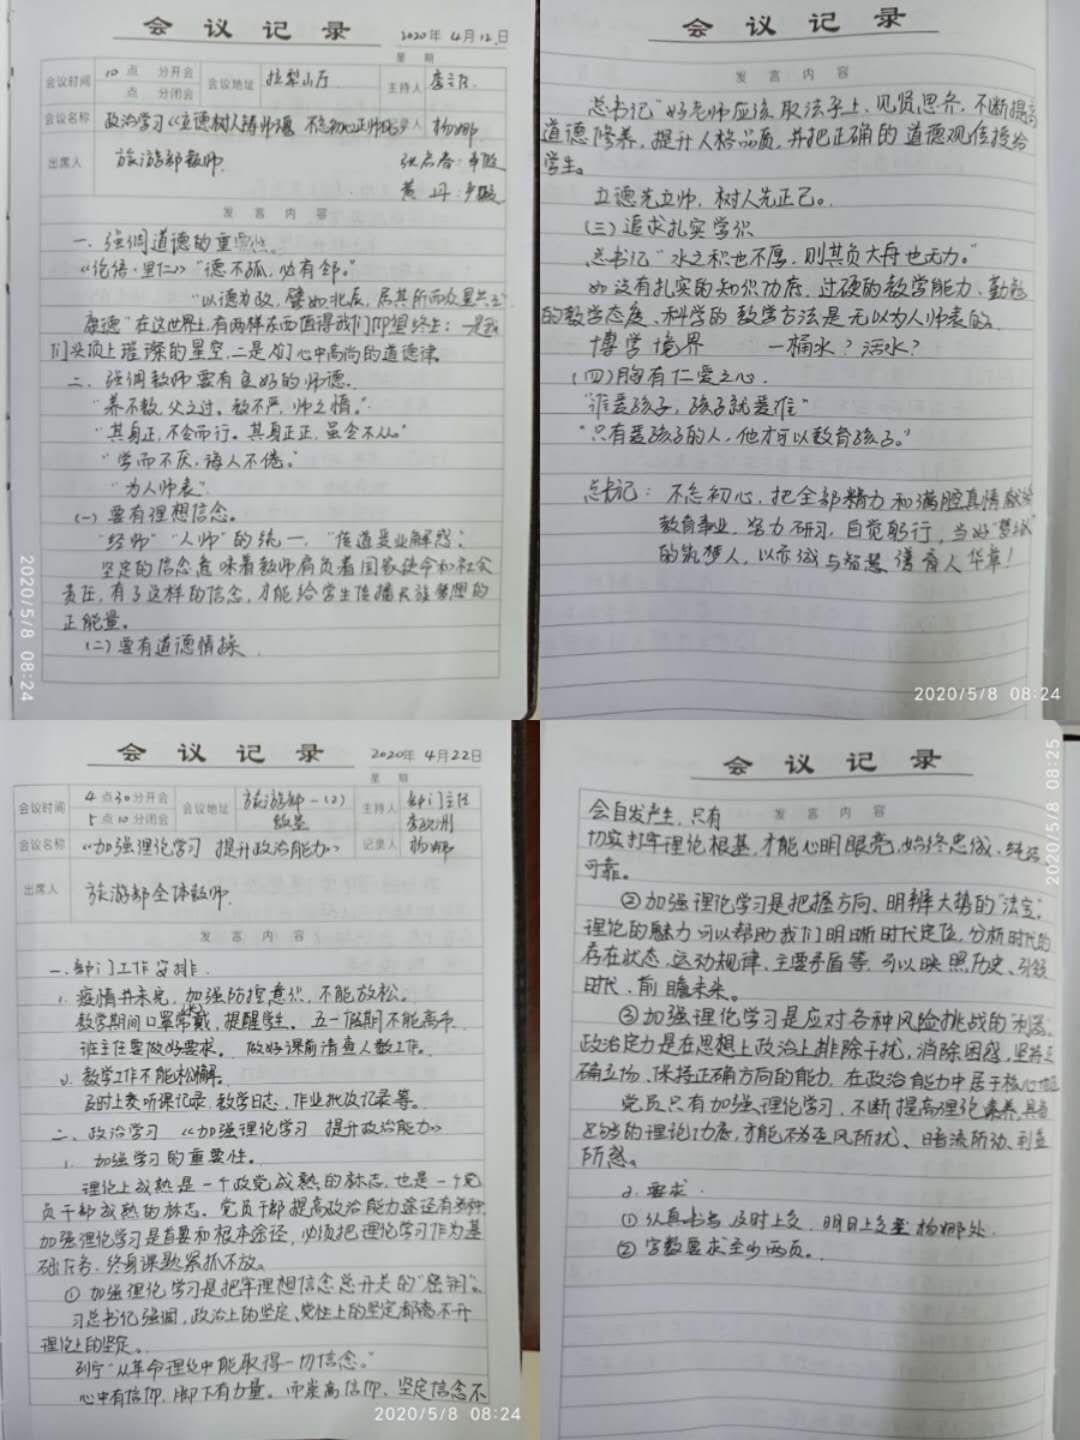 会议记录
2020年4月12日
星期
会议时间 10点 分开会
点 分闭会
会议地址
主持人 李主任
会议名称 政治学习《立德树人铸师魂 不忘初心正师风》
记录人 杨娜
出席人 旅游部教师 张启春:事假
黄丹:产假
发言内容
一、强调道德的重要性。
《论语·里仁》"德不孤,必有邻。"
"以德为政,譬如北辰,居其所而众星共之"
康德"在这世界上,有两样东西值得我们仰望终生:一是我
们头顶上璀璨的星空,二是人们心中高尚的道德律。
二、强调教师要有良好的师德。
"养不教,父之过。教不严,师之惰。"
"其身正,不令而行。其身正正,虽令不从。"
"学而不厌,诲人不倦。"
"为人师表"
(一)要有理想信念。
"经师""人师"的统一,"传道受业解惑"
坚定的信念意味着教师肩负着国家使命和社会
责任,有了这样的信念,才能给学生传播民族梦想的
正能量。
(二)要有道德情操
2020/5/8 08:24
会议记录
发言内容
总书记"好老师应该取法乎上、见贤思齐,不断提高
道德修养,提升人格品质,并把正确的道德观传授给
学生。
立德先立师,树人先正己。
(三)追求扎实学识
总书记"水之积也不厚,则其负大舟也无力。"
如没有扎实的知识功底、过硬的教学能力、勤勉
的教学态度、科学的教学方法是无以为人师表的
博学境界 一桶水?活水?
(四)胸有仁爱之心.
"谁爱孩子,孩子就爱谁"
"只有爱孩子的人,他才可以教育孩子。"
总书记: 不忘初心,把全部精力和满腔真情献给
教育事业,努力研习,自觉躬行,当好"梦之队"
的筑梦人,以赤诚与智慧谱育人华章!
2020/5/8 08:24
会议记录
2020年4月22日
星期
会议时间 4点30分开会
5点10分闭会
会议地址 旅游部一(2)
教室
主持人 部门主任
会议名称 《加强理论学习 提升政治能力》
记录人 杨娜
出席人 旅游部全体教师.
发言内容
一.部门工作安排.
1. 疫情并未完,加强防控意识,不能放松。
教学期间口罩常戴,提醒学生。五一假期不能离市
班主任要做好要求。做好课前清查人数工作。
2. 教学工作不能松懈。
及时上交听课记录、教学日志,作业批改记录等。
二、政治学习 《加强理论学习 提升政治能力》
1. 加强学习的重要性。
理论上成熟是一个政党成熟的标志,也是一个党
员干部成熟的标志。党员干部提高政治能力途径有多种,
加强理论学习是首要和根本途径,必须把理论学习作为基
础任务、终身课题紧抓不放。
①加强理论学习是把牢理想信念总开关的"密钥"。
习总书记强调,政治上的坚定、党性上的坚定都离不开
理论上的坚定。
列宁"从革命理论中能取得一切信念。"
心中有信仰,脚下有力量。而崇高信仰、坚定信念不
2020/5/8 08:24
会议记录
发言内容
会自发产生,只有
切实打牢理论根基,才能心明眼亮,始终忠诚、纯洁
可靠。
②加强理论学习是把握方向、明辨大势的"法宝"。
理论的魅力可以帮助我们明晰时代定位,分析时代的
存在状态、运动规律、主要矛盾等,可以映照历史、引领
时代、前瞻未来。
③加强理论学习是应对各种风险挑战的"利器"
政治定力是在思想上政治上排除干扰,消除困惑,坚持正
确立场、保持正确方向的能力,在政治能力中居于核心地位
党员只有加强理论学习,不断提高理论素养,具备
足够的理论功底,才能不为歪风所扰、暗流所动、利益
所惑。
2. 要求.
①认真书写 及时上交,明日上交至杨娜处.
②字数要求至少两页。
2020/5/8 08:25